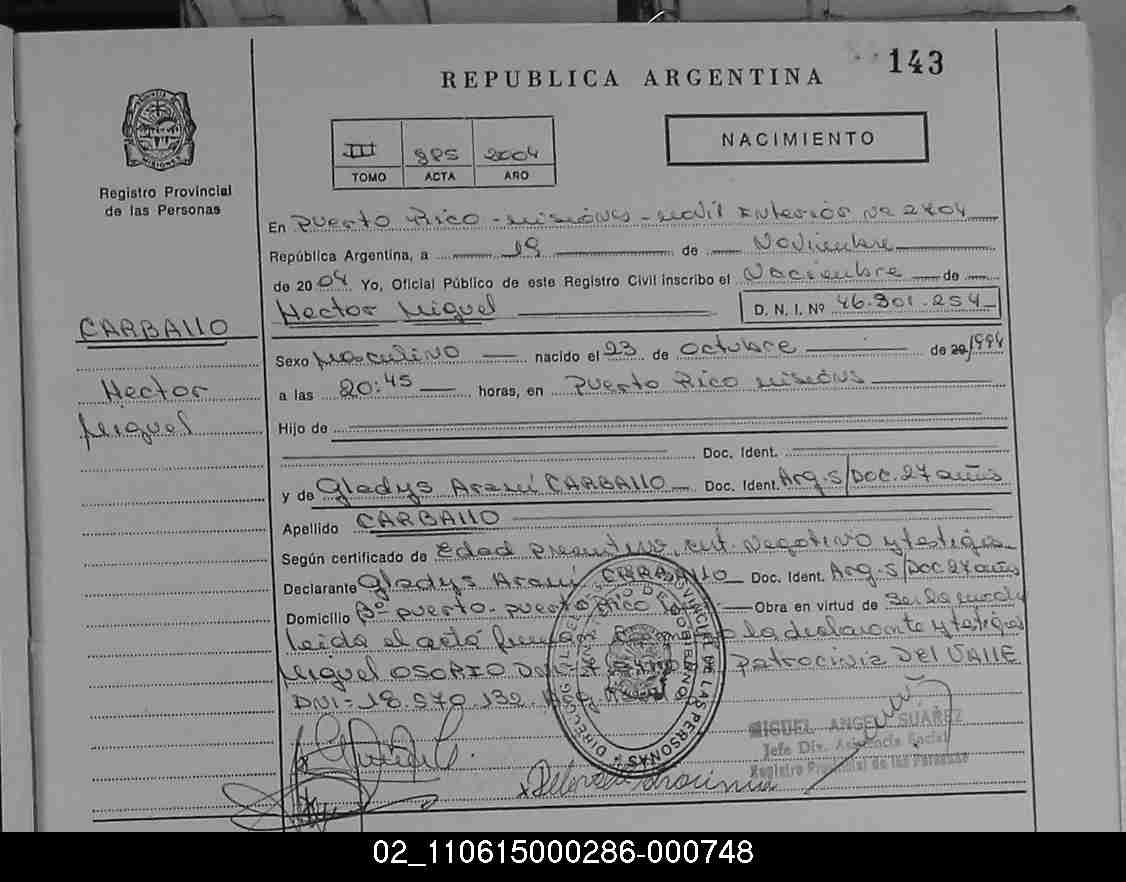 143
REPUBLICA ARGENTINA
NACIMIENTO
III 895 2004
TOMO ACTA AÑO
PROVINCIA MISIONES
Registro Provincial
de las Personas
En Puerto Rico - Misiones - Movil Interior Nº 2704
República Argentina, a 19 de Noviembre
de 2004 Yo, Oficial Público de este Registro Civil inscribo el Nacimiento de
Hector Miguel D. N. I. Nº 46.301.254
CARBALLO
Hector
Miguel
Sexo Masculino nacido el 23 de Octubre de 20/1994
a las 20:45 horas, en Puerto Rico Misiones
Hijo de
Doc. Ident.
y de Gladys Aramí CARBALLO Doc. Ident. Arg. S/Doc. 27 años
Apellido CARBALLO
Según certificado de Edad Presuntiva, cert. Negativo y testigos
Declarante Gladys Aramí CARBALLO Doc. Ident. Arg. S/Doc 27 años
Domicilio Bº Puerto - Puerto Rico Obra en virtud de Ser la madre
leida el acta firman la declarante y testigos
Miguel OSORIO DNI Patrocinia DEL VALLE
DNI = 18.570.132 Arg.
MIGUEL ANGEL SUÁREZ
Jefe Div. Asistencia Social
Registro Provincial de las Personas
02_110615000286-000748